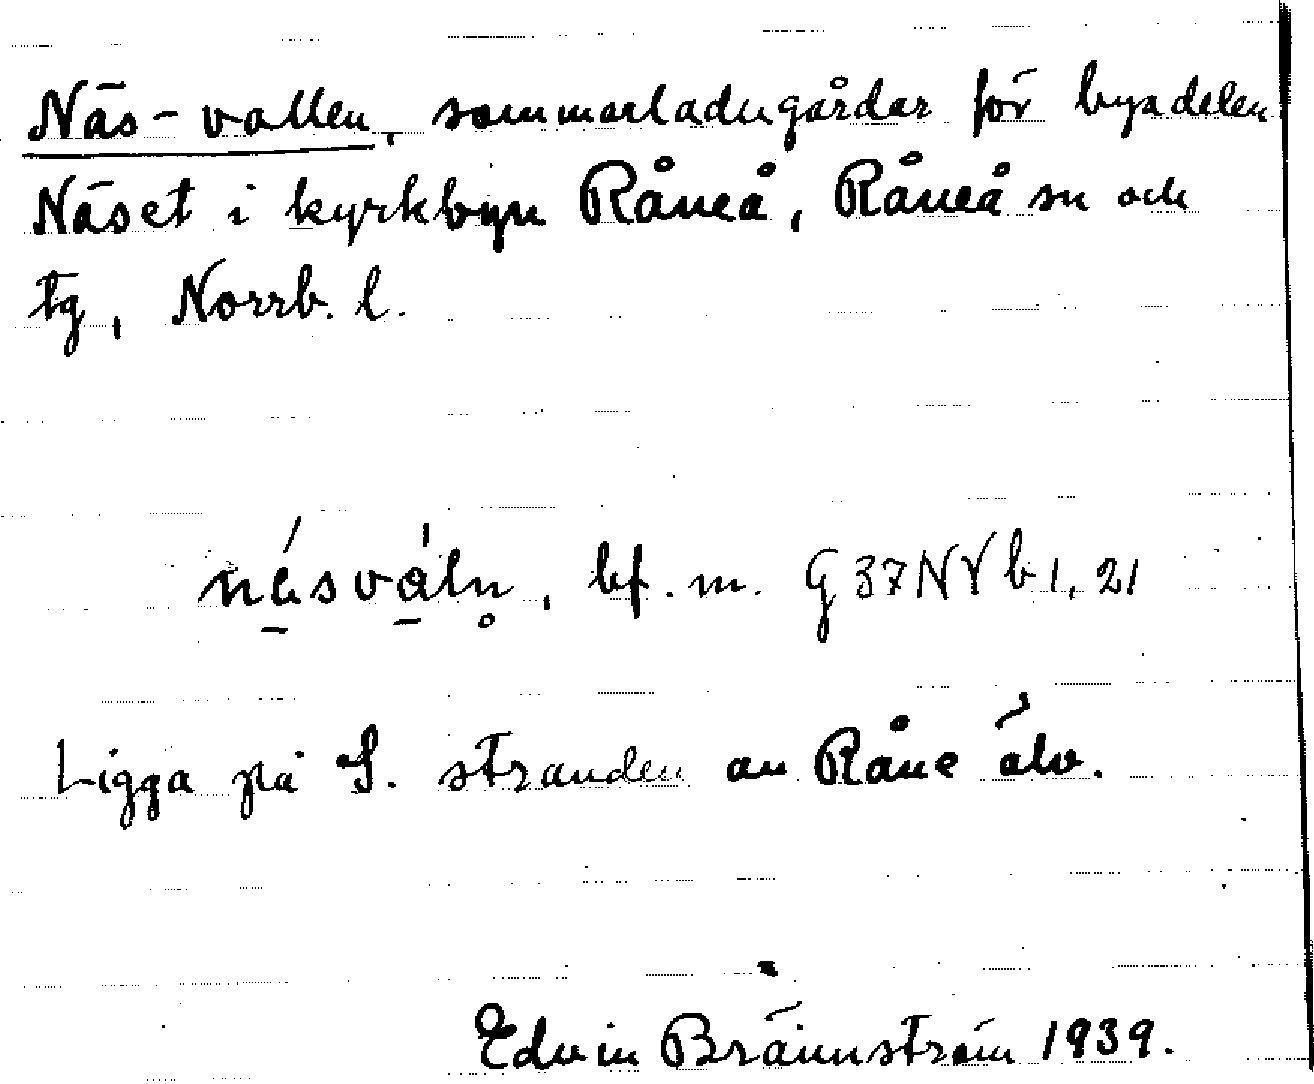 Näs-vallen, sommarladugårdar för byadelen
Näset i kyrkbyn Råneå, Råneå sn och
tg, Norrb. l.
näsvàln̥, bf. m. G 37 N Vb 1, 21
Ligga på S. stranden av Råne älv.
Edvin Brännström 1939.